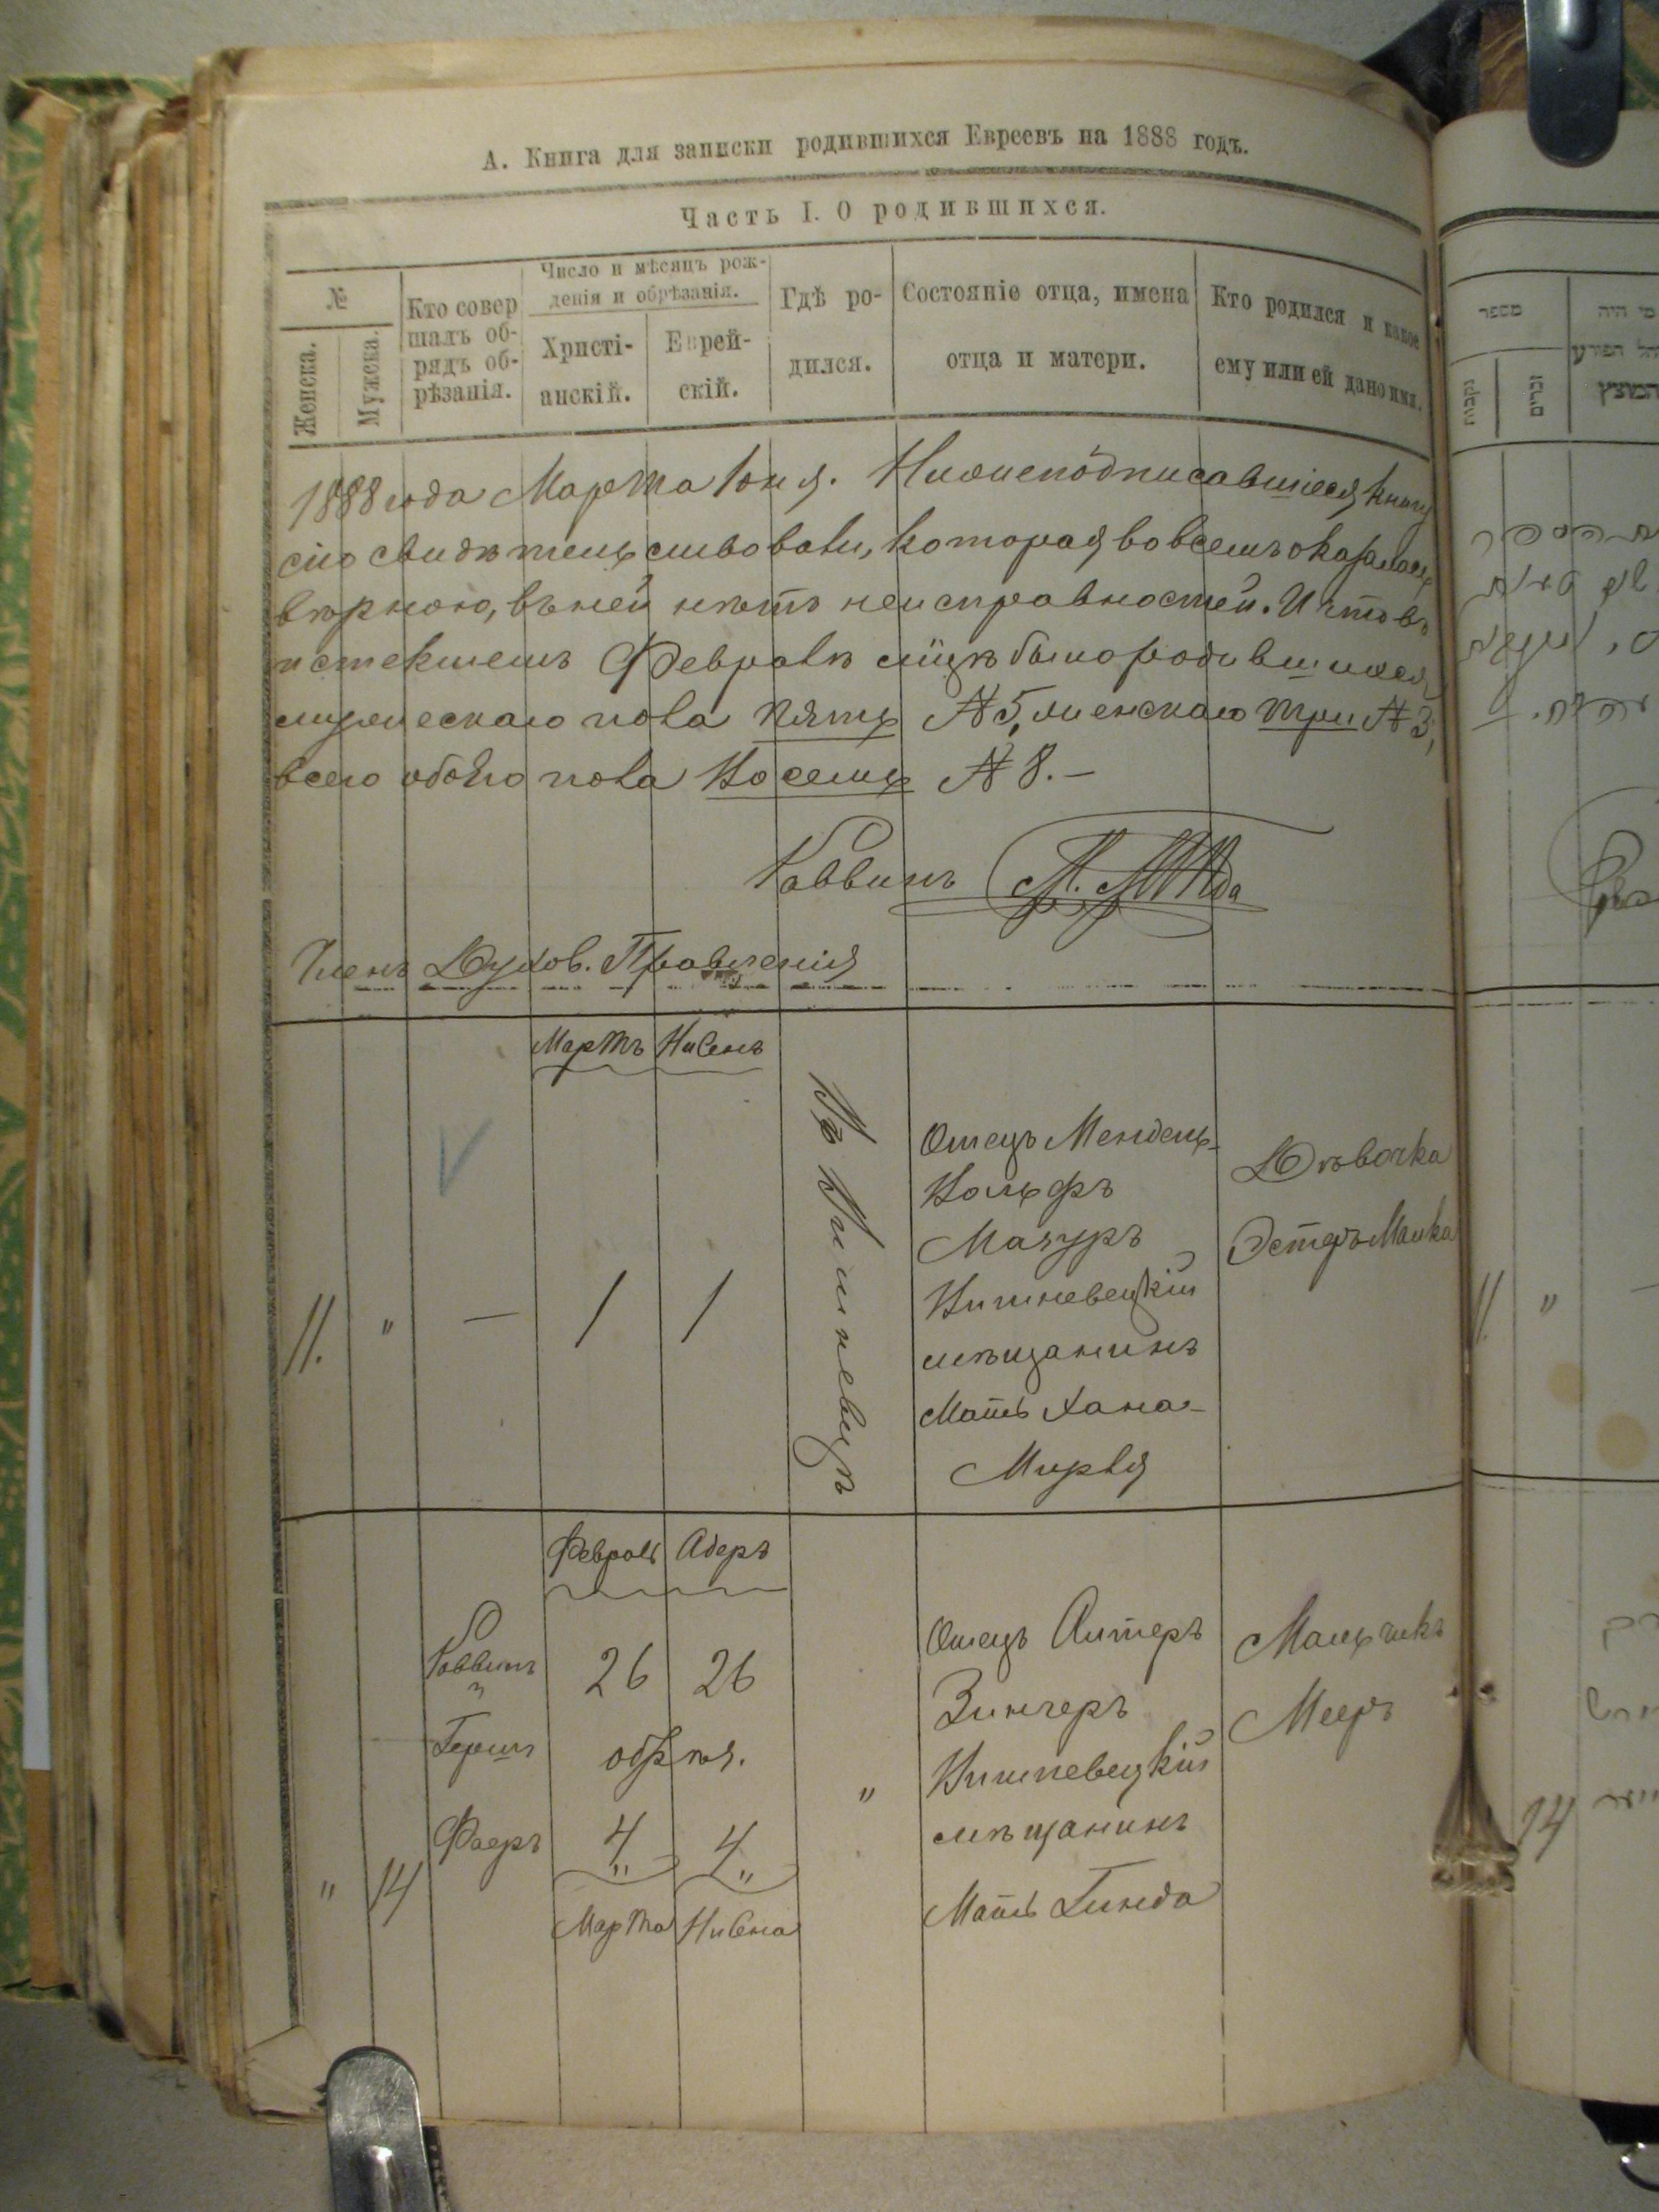 А. Книга для записки родившихся Евреевъ на 1888 годъ.
Часть I. О родившихся.
№
Женска.
Мужска.
Кто совер
шалъ об-
рядъ об-
рѣзанія.
Число и мѣсяцъ рож-
денія и обрѣзанія.
Христі-
анскій.
Еврей-
скій.
Гдѣ ро-
дился.
Состояніе отца, имена
отца и матери.
Кто родился и какое
ему или ей дано имя.
1888 года Марта 1 дня. Нижеподписавшіеся книгу
сію свидѣтельствовали, которая во всемъ оказалась
вѣрною, въ ней нѣтъ неисправностей. И что въ
истекшемъ Февралѣ м-цѣ было родившихся
мужескаго пола пять № 5, женскаго три № 3,
всего обоего пола восемь № 8.—
Раввинъ
Членъ Духов. Правленія
Мартъ Нисенъ
11. " — 1 1
Въ Вишневцѣ
Отецъ Мендель-
Вольфъ
Мазуръ
Вишневецкій
мѣщанинъ
Мать Хана-
Мирля
Дѣвочка
Эстеръ Малка
Февраль Адеръ
" 14
Раввинъ
Герш
Фаеръ
26 26
обрѣз.
4 " 4 "
Марта Нисена
"
Отецъ Алтеръ
Зингеръ
Вишневецкій
мѣщанинъ
Мать Гинда
Мальчикъ
Мееръ
מספר
נקבות
זכרים
מי היה
המצץ
11. " —
14